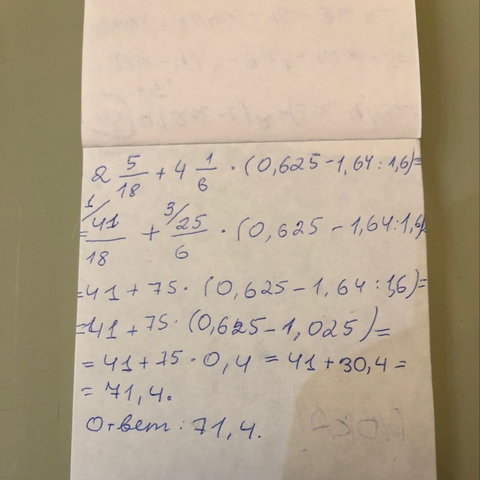 2 5/18 + 4 1/6 · (0,625 - 1,64 : 1,6) =
= 1/ 41/18 + 3/ 25/6 · (0,625 - 1,64 : 1,6) =
= 41 + 75 · (0,625 - 1,64 : 1,6) =
= 41 + 75 · (0,625 - 1,025) =
= 41 + 75 · 0,4 = 41 + 30,4 =
= 71,4.
Ответ: 71,4.